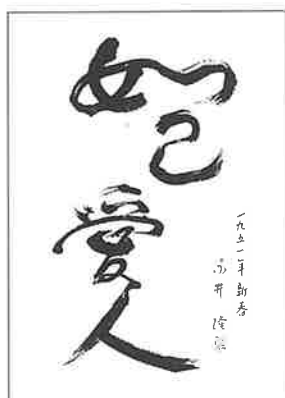 如己愛人
一九五一年新春
永井 隆